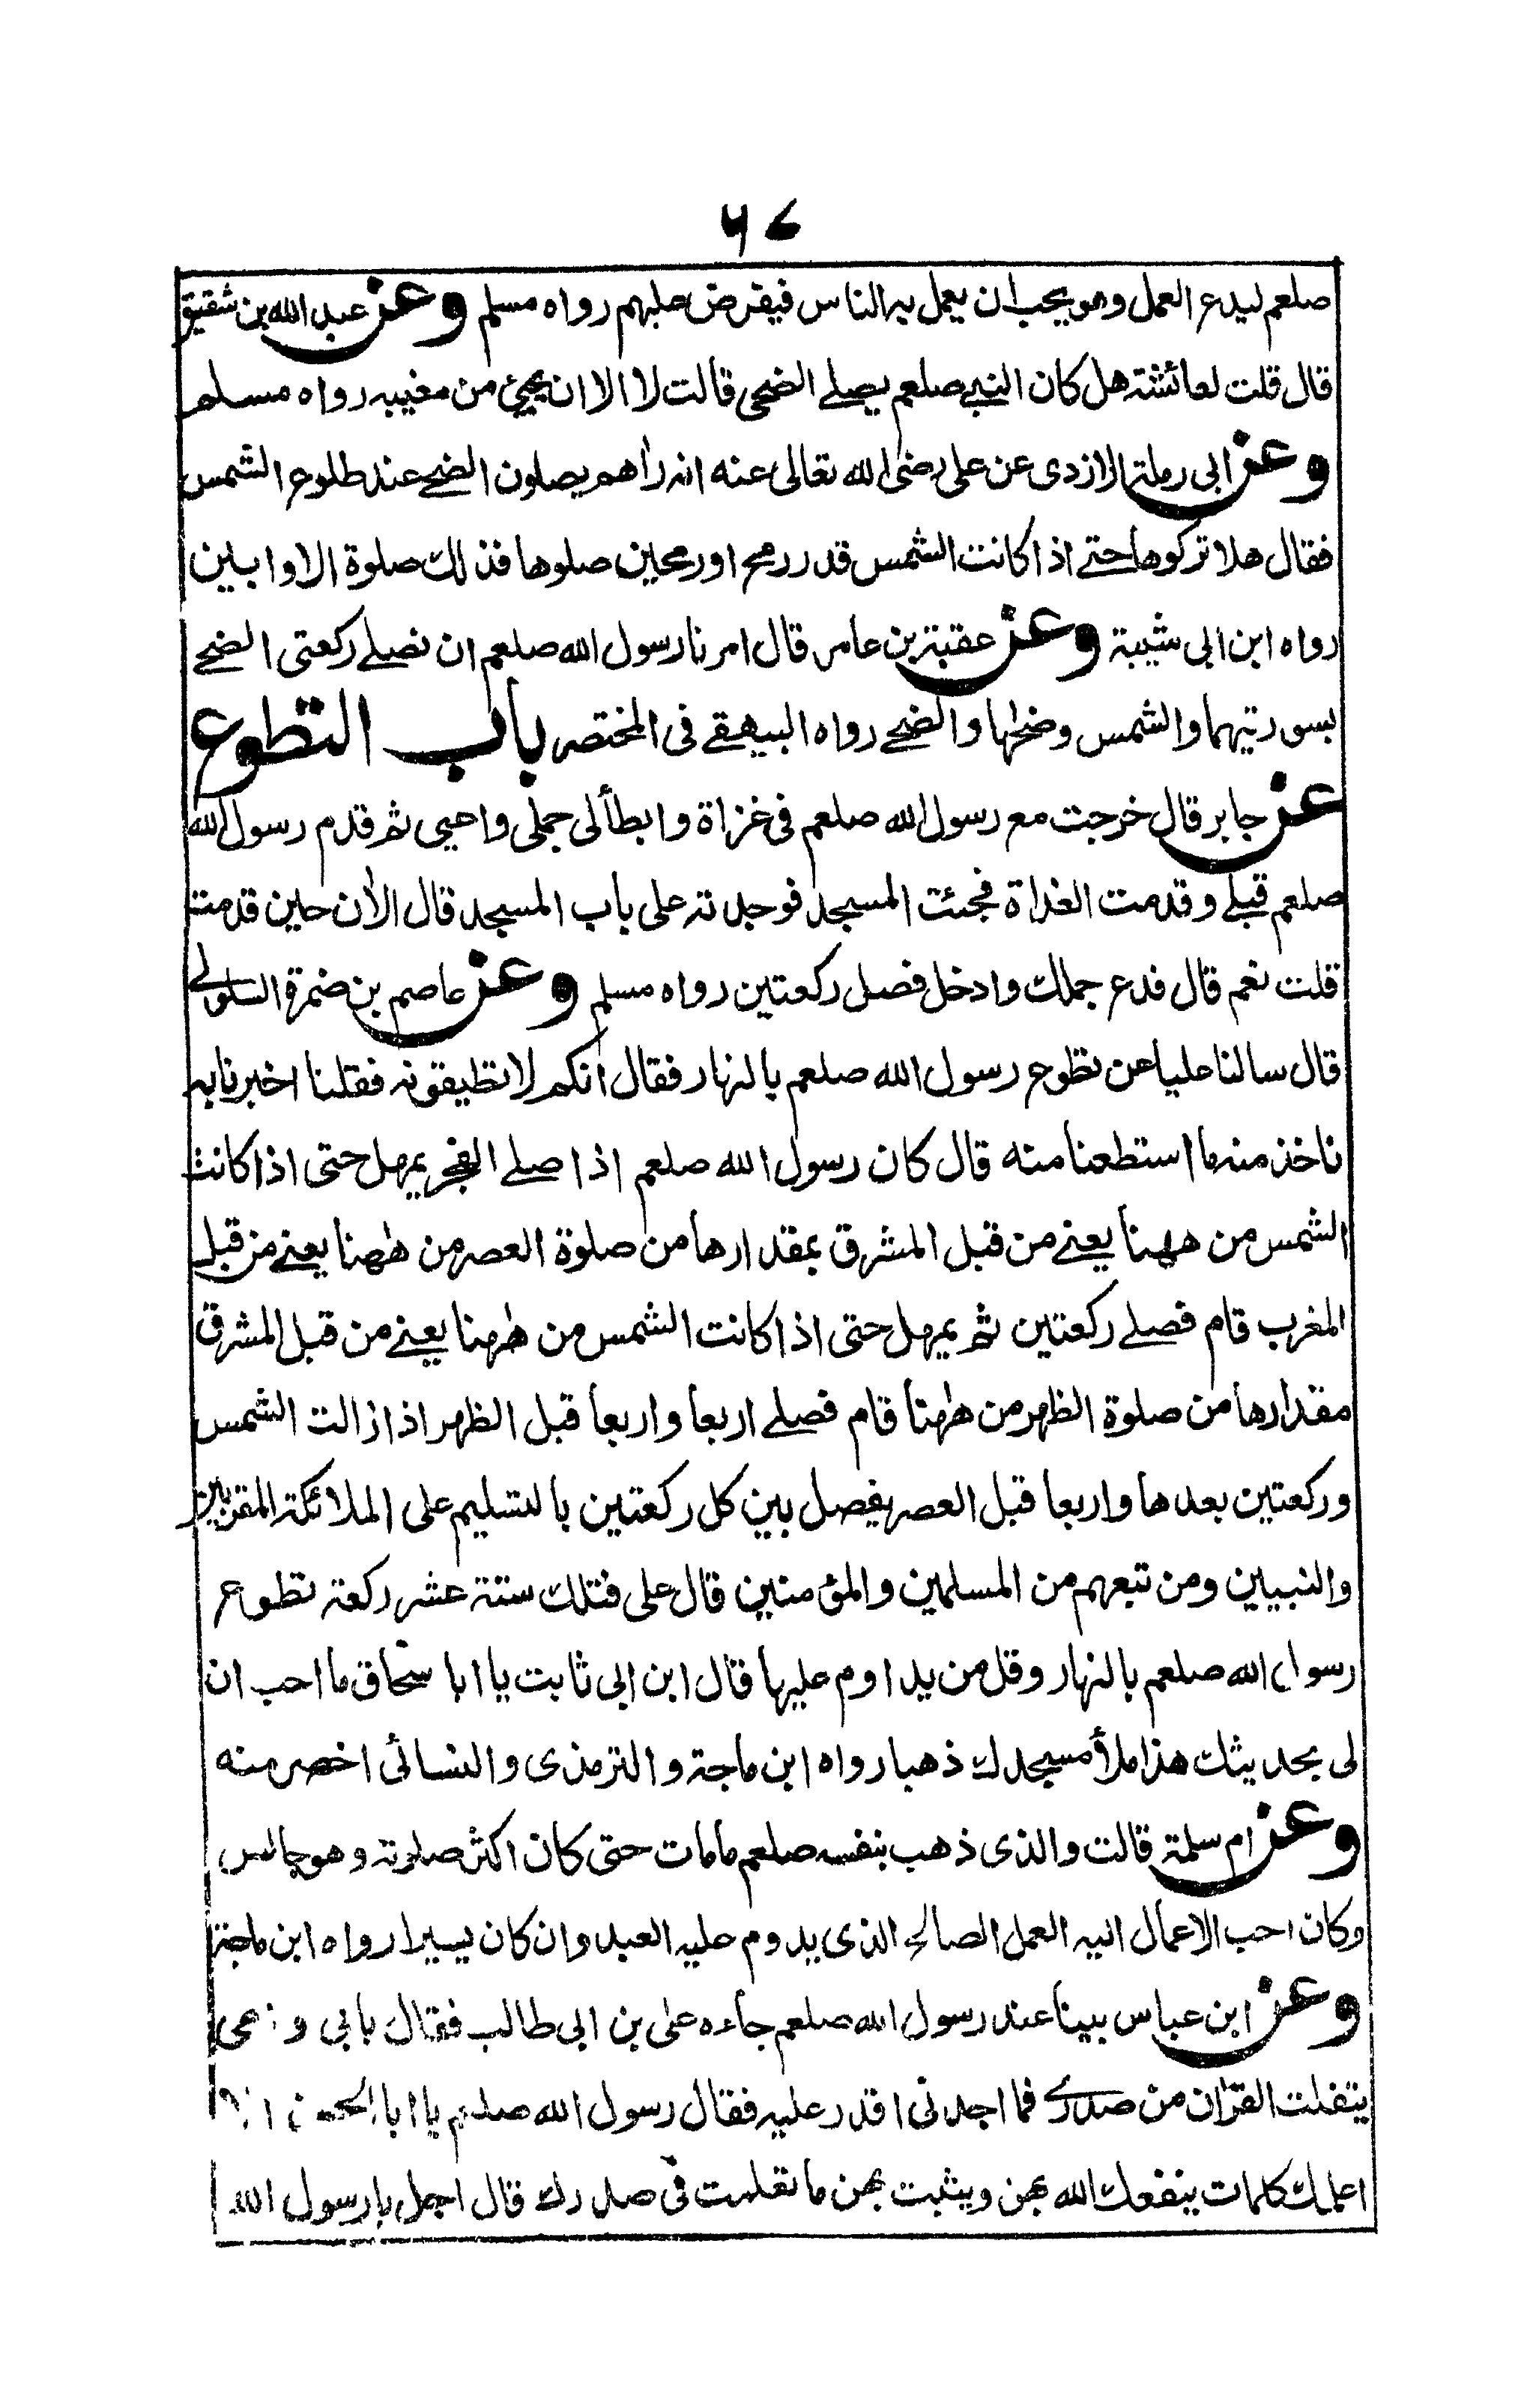 ٦٧
صلعم ليدع العمل وهو يحب ان يعمل به الناس فيفرض عليهم رواه مسلم وعن عبد الله بن شقيق
قال قلت لعائشة هل كان النبي صلعم يصلي الضحى قالت لا الا ان يجيئ من مغيبه رواه مسلم
وعن ابى رملة الازدى عن على رضى الله تعالى عنه انه راهم يصلون الضحے عند طلوع الشمس
فقال هلا تركوها حتے اذا كانت الشمس قدر رمح او رمحين صلوها فذلك صلوة الاوابين
رواه ابن ابى شيبة وعن عقبة بن عامر قال امرنا رسول الله صلعم ان نصلے ركعتى الضحے
بسورتيهما والشمس وضحٰها والضحے رواه البيهقے فى المختصر باب التطوع
عن جابر قال خرجت مع رسول الله صلعم فى غزاة وابطألى جملى واعيى ثم قدم رسول الله
صلعم قبلے وقدمت الغداة فجئت المسجد فوجدته على باب المسجد قال الاٰن حين قدمت
قلت نعم قال فدع جملك وادخل فصل ركعتين رواه مسلم وعن عاصم بن ضمرة السلولے
قال سالنا عليا عن تطوع رسول الله صلعم بالنهار فقال انكم لا تطيقونه فقلنا اخبرنا به
ناخذ منه ما استطعنا منه قال كان رسول الله صلعم اذا صلے الفجر يمهل حتى اذا كانت
الشمس من ههنا يعنے من قبل المشرق بمقدارها من صلوة العصر من هٰهنا يعنے من قبل
المغرب قام فصلے ركعتين ثم يمهل حتى اذا كانت الشمس من هٰهنا يعنے من قبل المشرق
مقدارها من صلوة الظهر من هٰهنا قام فصلے اربعا واربعا قبل الظهر اذا زالت الشمس
وركعتين بعدها واربعا قبل العصر يفصل بين كل ركعتين بالتسليم على الملائكة المقربين
والنبيين ومن تبعهم من المسلمين والمؤمنين قال على فتلك ستة عشر ركعة تطوع
رسول الله صلعم بالنهار وقل من يداوم عليها قال ابن ابى ثابت يا ابا سحاق ما احب ان
لى بحديثك هذا ملأ مسجدك ذهبا رواه ابن ماجة والترمذى والنسائى اخصر منه
وعن ام سلمة قالت والذى ذهب بنفسه صلعم مامات حتى كان اكثر صلوته وهو جالس
وكان احب الاعمال اليه العمل الصالح الذى يدوم عليه العبد وان كان يسيرا رواه ابن ماجة
وعن ابن عباس بينا عند رسول الله صلعم جاءه على بن ابى طالب فقال بابى و
يتفلت القرٰان من صدرے فما اجدنى اقدر عليه فقال رسول الله صلعم يا ابا الحسن
اعلمك كلمات ينفعك الله بهن ويثبت بهن ما تعلمت فى صدرك قال اجل يا رسول الله